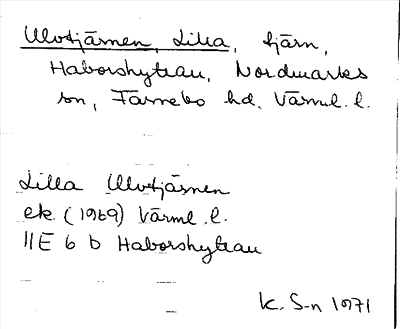 Ulvtjärnen, Lilla, tjärn,
Haborshyttan, Nordmarks
sn, Färnebo hd. Värml. l.
Lilla Ulvtjärnen
ek. (1969) Värml. l.
11E 6 b Haborshyttan
K. S-n 1971